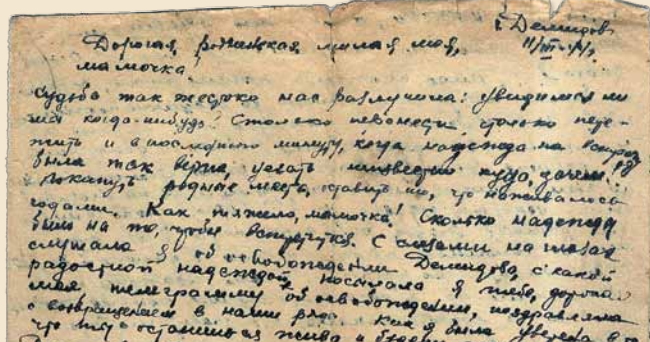 г. Демидов
11/III-
Дорогая, родненькая, милая моя,
мамочка!
Судьба так жестоко нас разлучила: увидимся ли
мы когда-нибудь? Столько перенести, столько пере-
жить и в последнюю минуту, когда надежда на встречу
была так верна, уехать неизвестно куда, зачем?
Покинуть родные места, оставить то, что наживалось
годами. Как тяжело, мамочка! Сколько надежд
было на то, чтобы встретиться. С слезами на глазах
слушала я об освобождении Демидова, с какой
радостной надеждой посылала я тебе, дорогая
моя телеграмму об освобождении, поздравляла
с возвращением в наши ряды. Как я была уверена в том
что ты останешься жива и